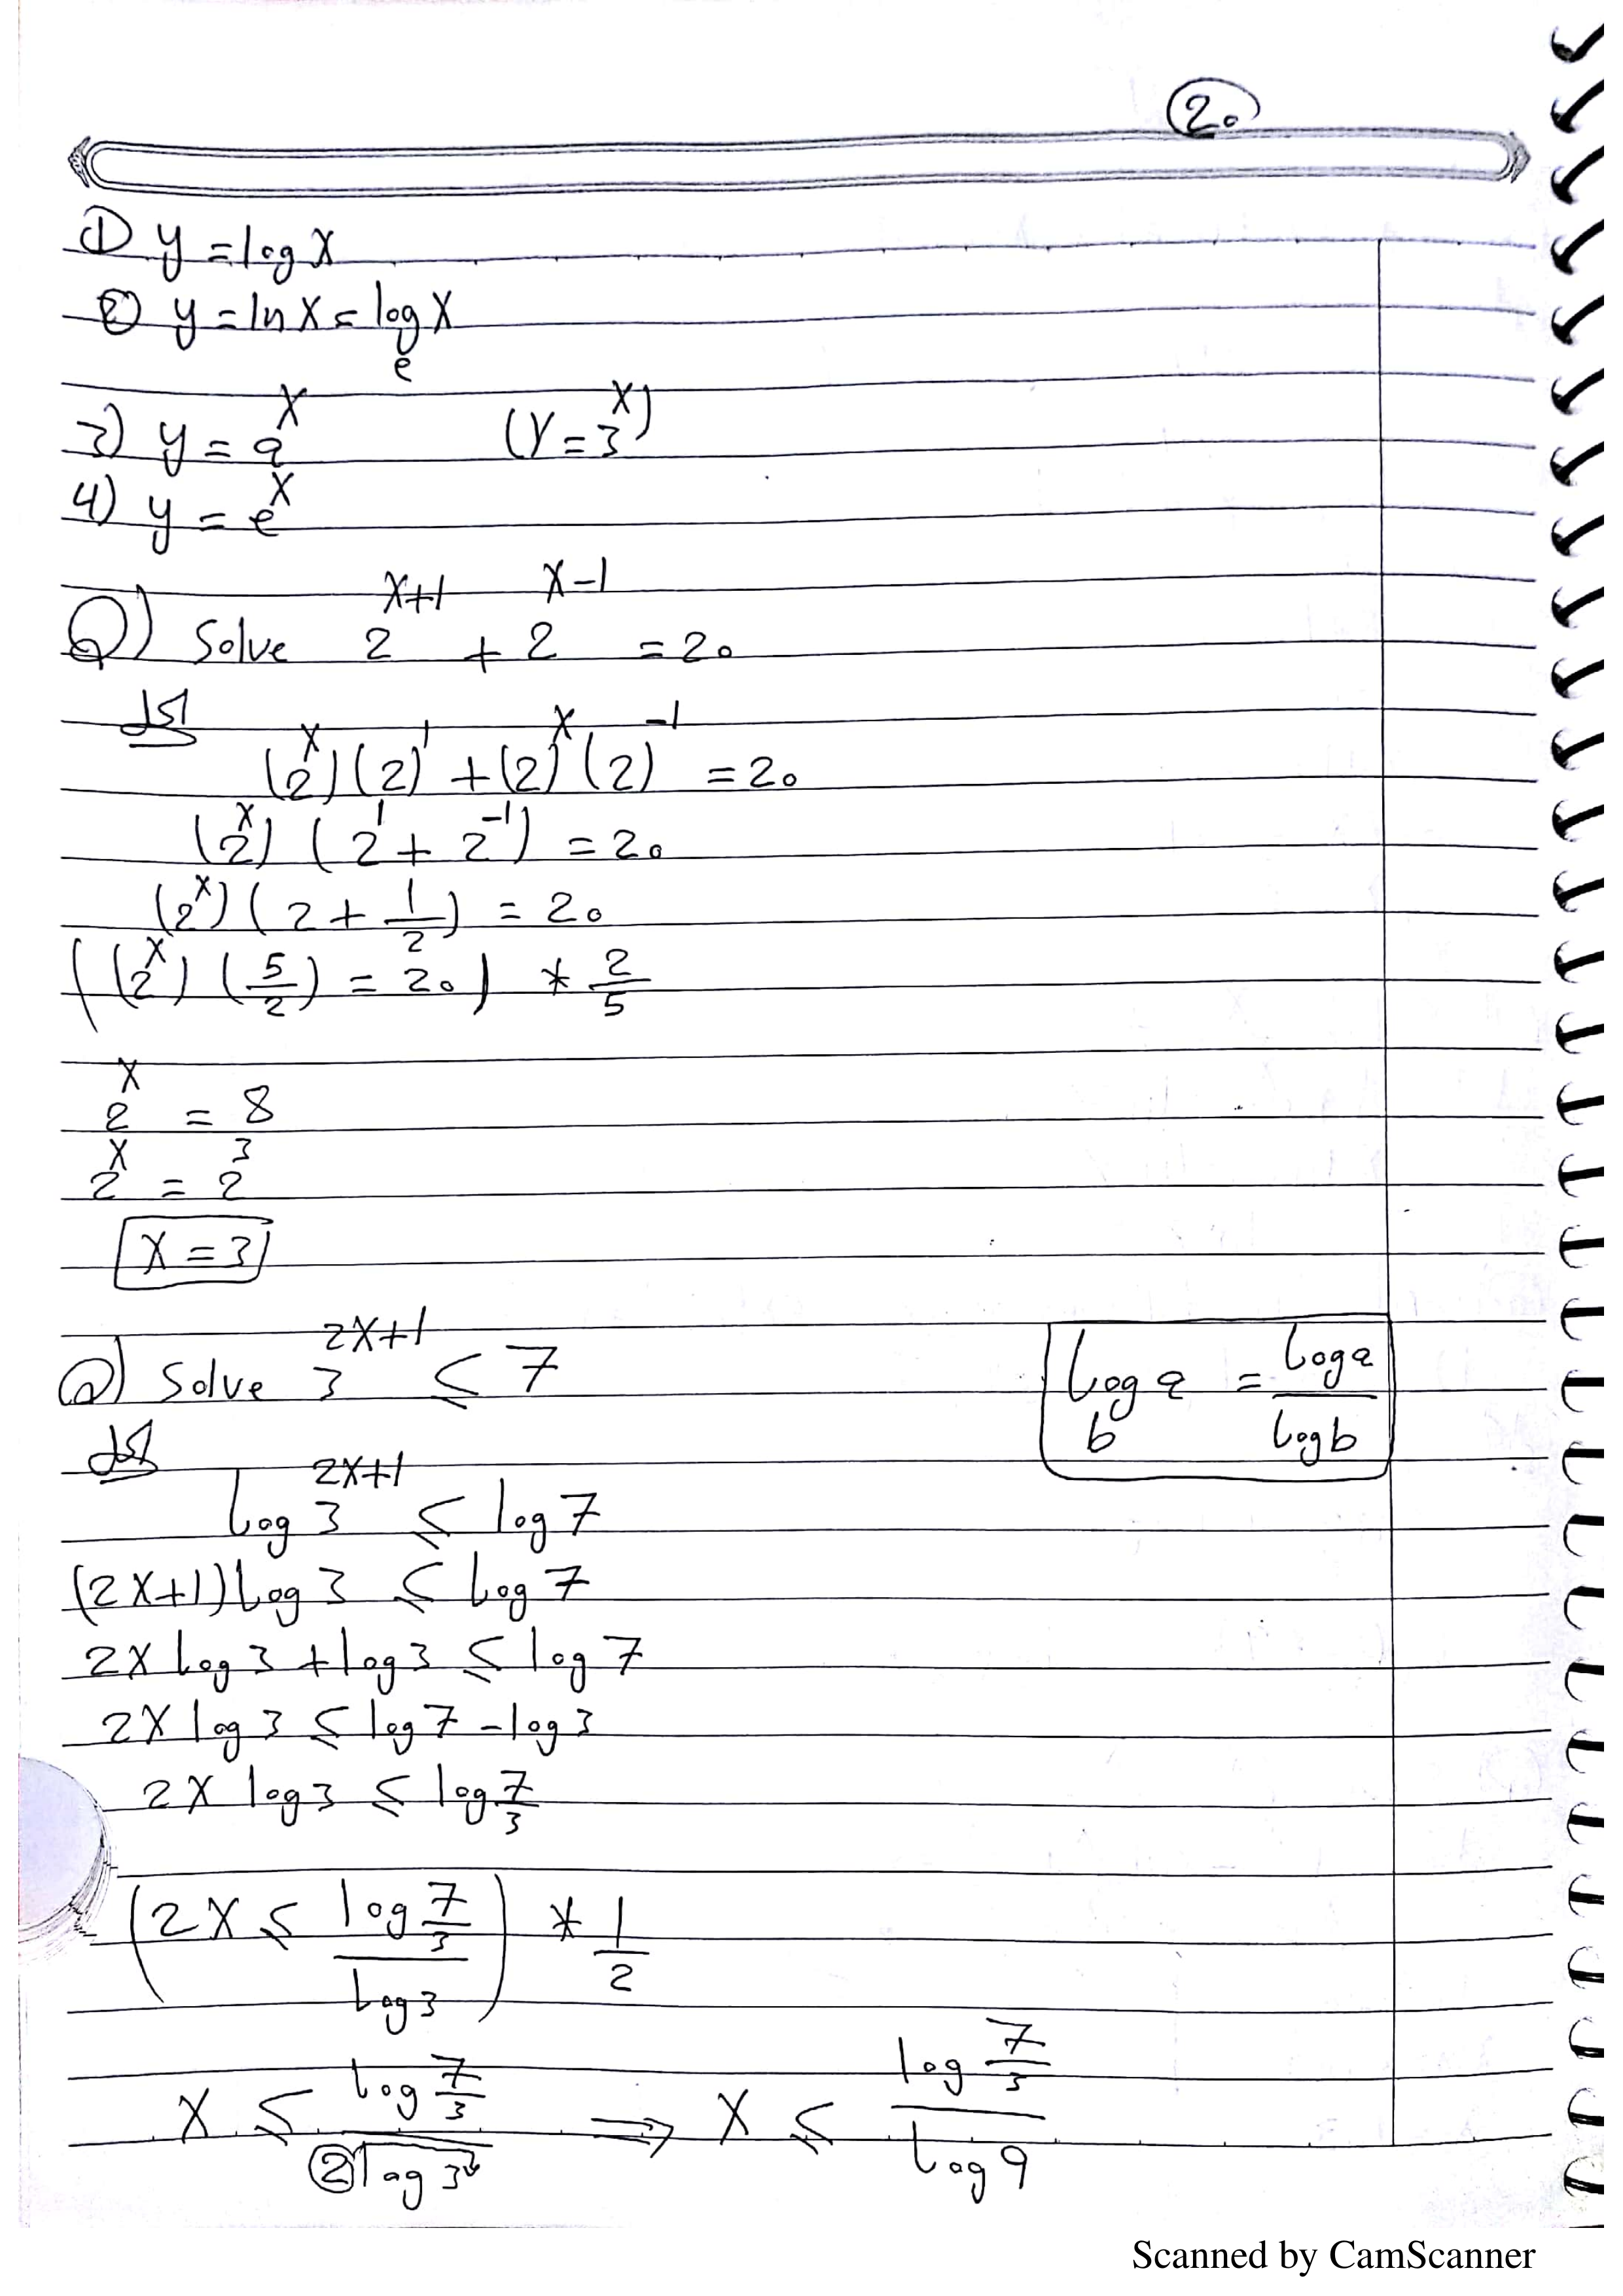 20
① y = log x
② y = ln x = log_e x
3) y = a^x (y = 3^x)
4) y = e^x
Q) Solve 2^{x+1} + 2^{x-1} = 20
(2^x)(2)^1 + (2)^x (2)^{-1} = 20
(2^x)(2^1 + 2^{-1}) = 20
(2^x)(2 + 1/2) = 20
((2^x)(5/2) = 20) * 2/5
2^x = 8
2^x = 2^3
x = 3
Q) Solve 3^{2x+1} ≤ 7
log_b a = log a / log b
log 3^{2x+1} ≤ log 7
(2x+1) log 3 ≤ log 7
2x log 3 + log 3 ≤ log 7
2x log 3 ≤ log 7 - log 3
2x log 3 ≤ log 7/3
(2x ≤ log 7/3 / log 3) * 1/2
x ≤ log 7/3 / ② log 3^2 ⟹ x ≤ log 7/3 / log 9
Scanned by CamScanner